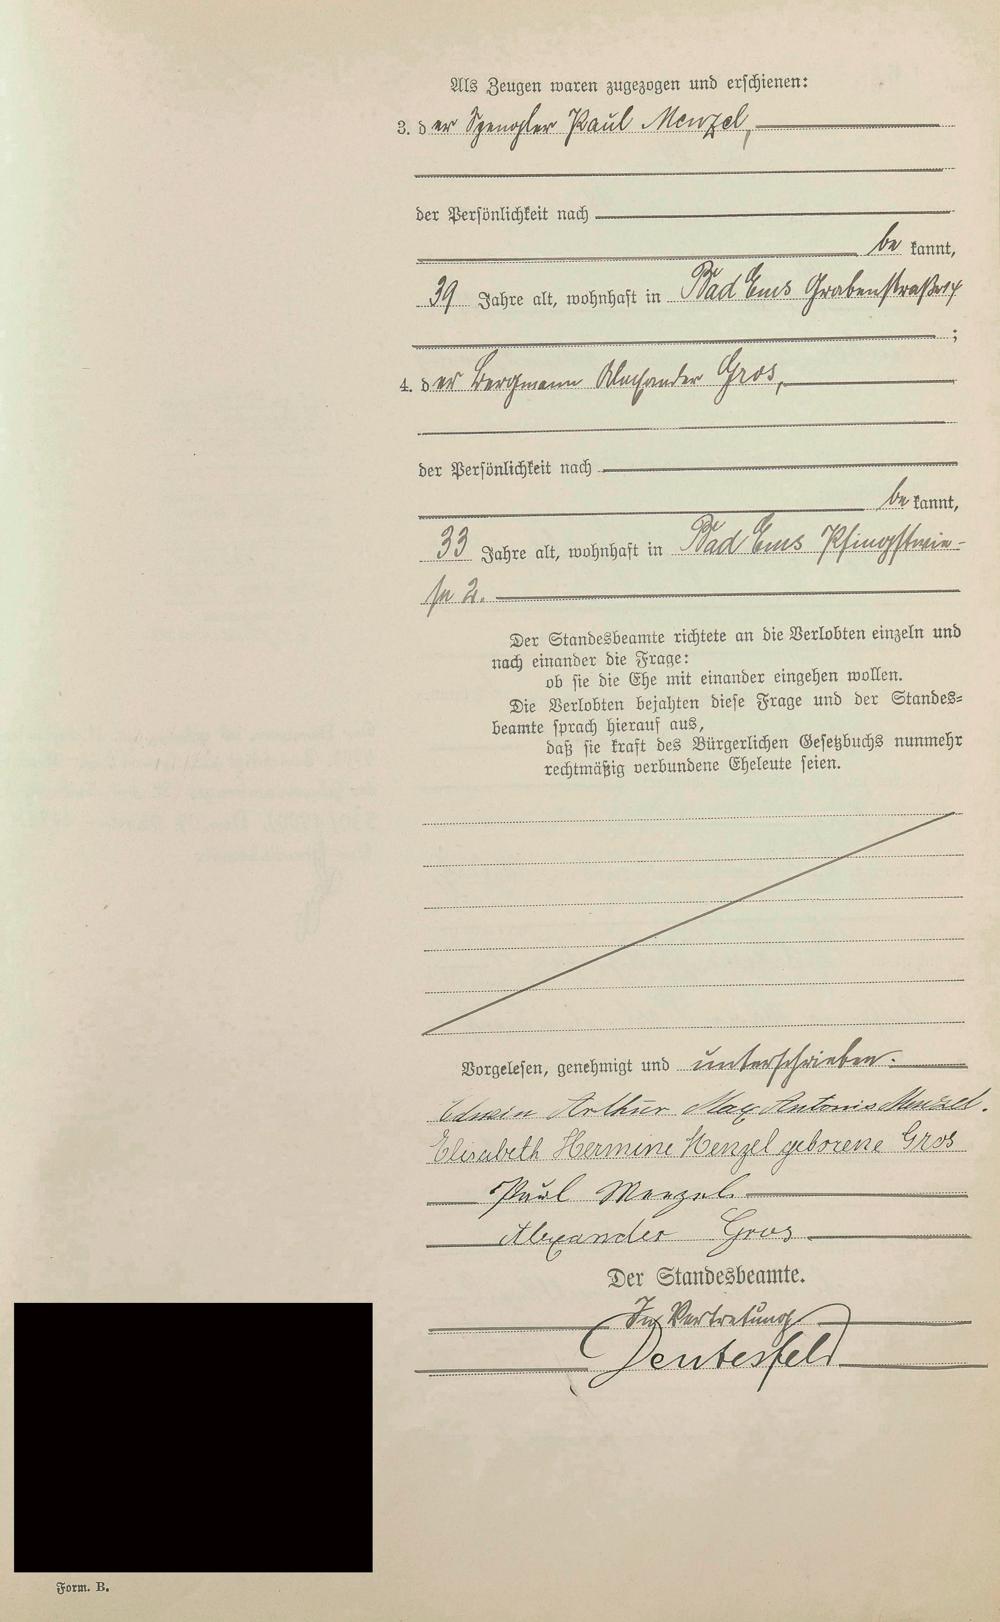 Als Zeugen waren zugezogen und erschienen:
3. der Spengler Paul Menzel,
der Persönlichkeit nach
be kannt,
39 Jahre alt, wohnhaft in Bad Ems Grabenstraße
;
4. der Bergmann Alexander Gros,
der Persönlichkeit nach
be kannt,
33 Jahre alt, wohnhaft in Bad Ems Pfingstwie-
se 2.
Der Standesbeamte richtete an die Verlobten einzeln und
nach einander die Frage:
ob sie die Ehe mit einander eingehen wollen.
Die Verlobten bejahten diese Frage und der Standes=
beamte sprach hierauf aus,
daß sie kraft des Bürgerlichen Gesetzbuchs nunmehr
rechtmäßig verbundene Eheleute seien.
Vorgelesen, genehmigt und unterschrieben.
Edwin Arthur Max Antonio Menzel.
Elisabeth Hermine Menzel geborene Gros
Paul Menzel
Alexander Gros
Der Standesbeamte.
In Vertretung
Deutesfeld
Form. B.